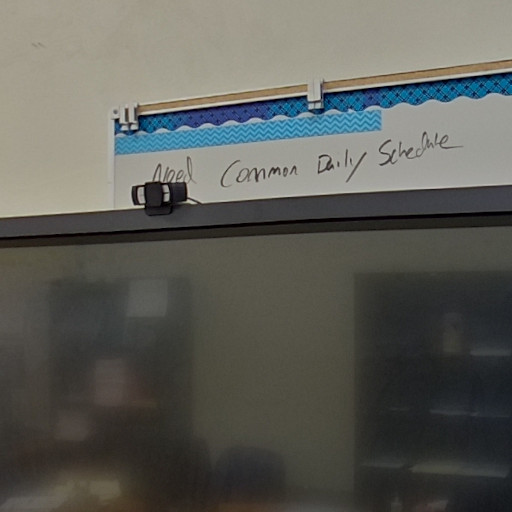 Need Common Daily Schedule